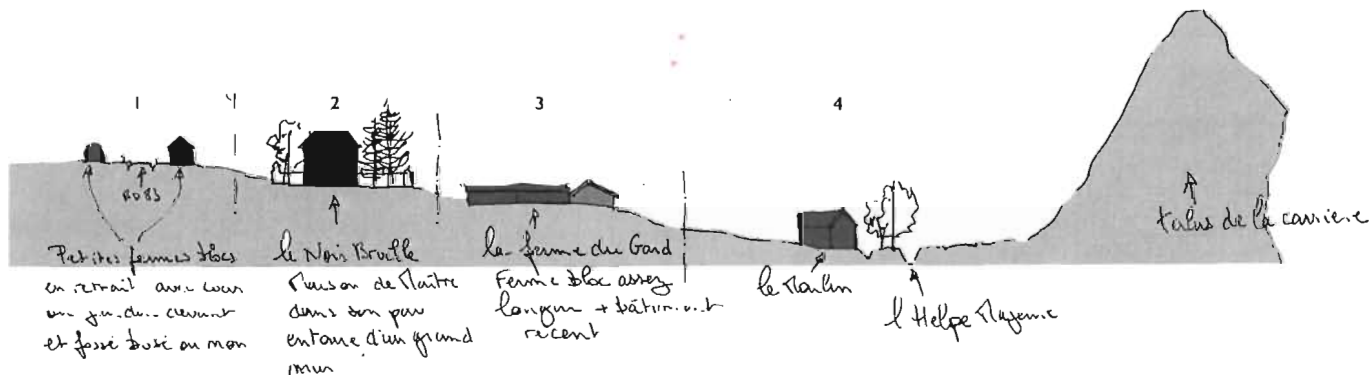 1
4
2
3
4
RD 83
Petites fermes blocs
en retrait avec cour
ou jardin devant
et fossé busé ou non
le Nois Bruille
Maison de Maître
dans son parc
entouré d'un grand
mur
la ferme du Gard
Ferme bloc assez
longue + bâtiment
récent
le Moulin
l'Helpe Majeure
talus de la carrière